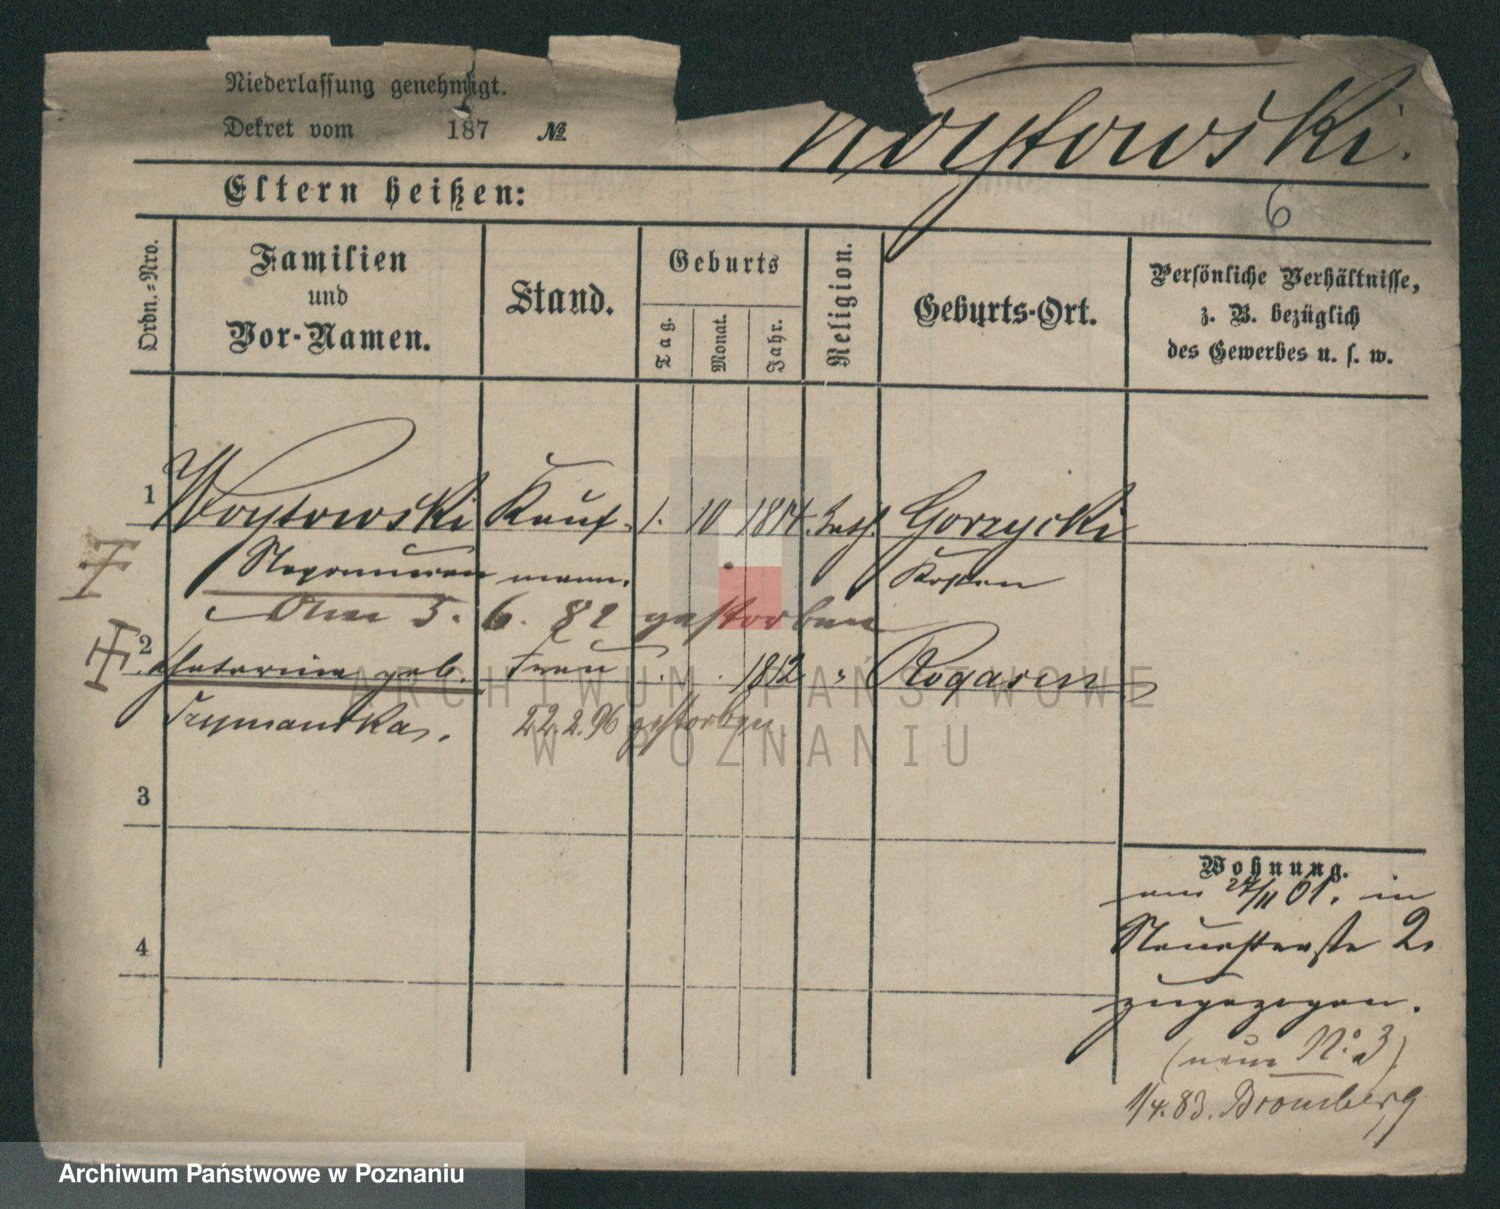 Niederlassung genehmigt.
Dekret vom 187 №
Woytowski.
Eltern heißen:
6
Ordn.-Nro.
Familien und Vor-Namen.
Stand.
Geburts
Tag.
Monat.
Jahr.
Religion.
Geburts-Ort.
Persönliche Verhältnisse,
z. B. bezüglich
des Gewerbes u. s. w.
1 Woytowski Kauf- 1. 10 1814. kath. Gorzycki
Nepomucen mann. Kosten
5. 6. 82 gestorben
2 Catarina geb. Frau 1812 " Rogasen
Szymanska. 22.2.96 gestorben
3
4
Wohnung.
am 24/11 01. in
Neuestraße 2.
zugezogen.
(neue No. 3)
1/4.83. Bromberg
ARCHIWUM PAŃSTWOWE
W POZNANIU
Archiwum Państwowe w Poznaniu